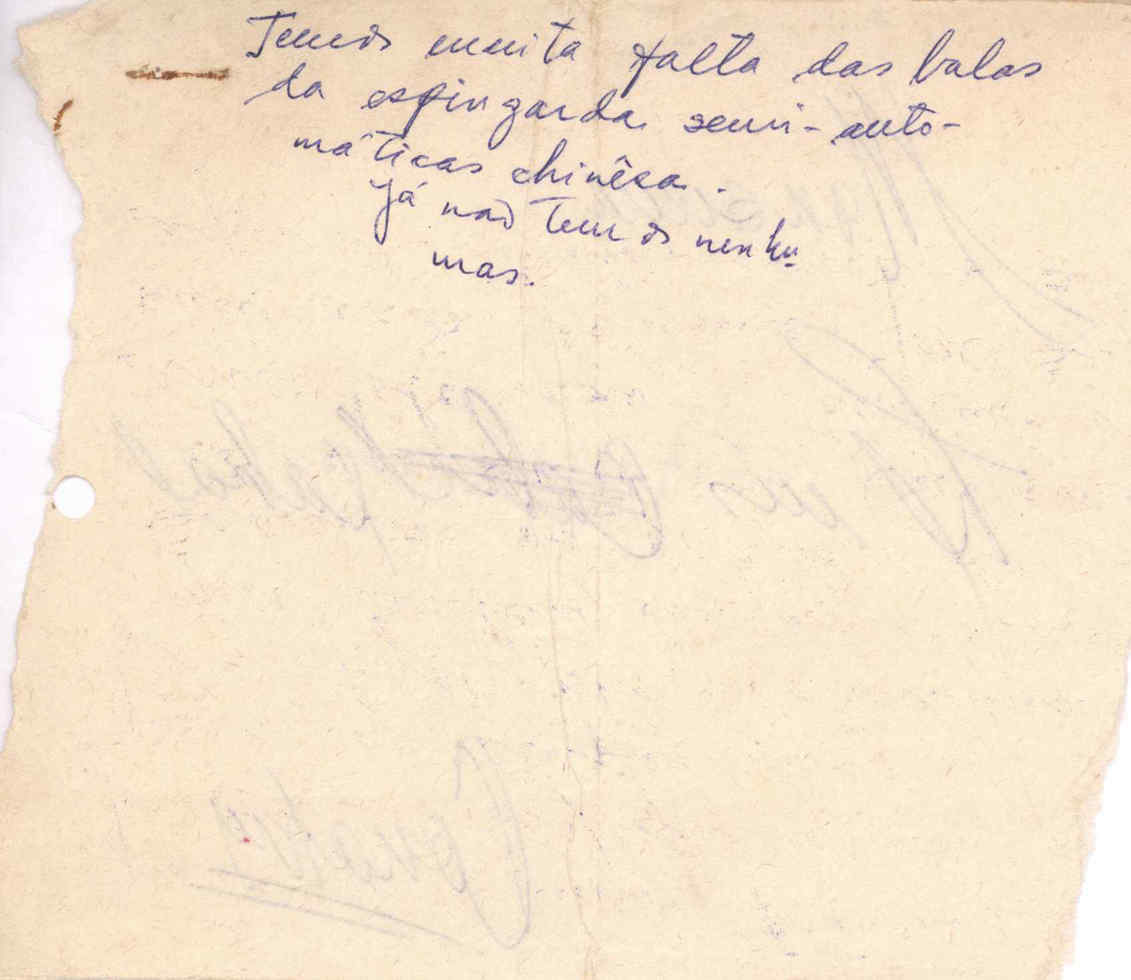 Temos muita falta das balas
da espingarda semi-auto-
máticas chinêsa.
Já não temos nenhu
mas.